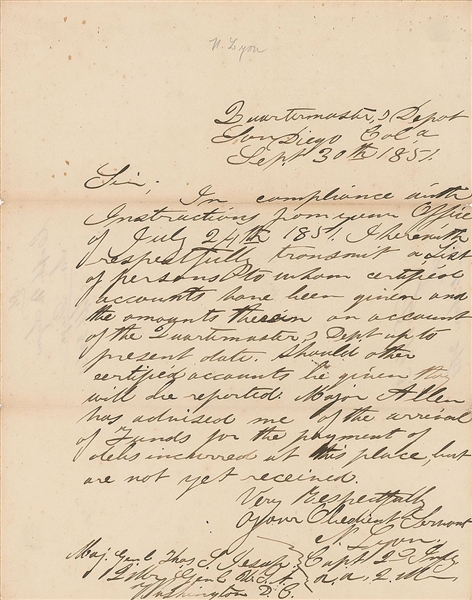 N. Lyon
Quartermaster,s Depot
San Diego Cal,a
Sept 30th 1851.
Sir; In compliance with
Instructions from your Office
of July 24th 1851. I herewith
respectfully transmit a List
of persons to whom certified
accounts have been given and
the amounts therein on account
of the Quartermaster,s Dept up to
present date. Should other
certified accounts be given they
will be reported. Major Allen
has advised me of the arrival
of Funds for the payment of
debts incurred at this place, but
are not yet received.
Very Respectfully
Your Obedient Servant
N. Lyon.
Maj. Genl Thos S. Jesup Capt 2d Infy
Qr Mr Genl U.S.A. a. a. Q. M.
Washington D.C.